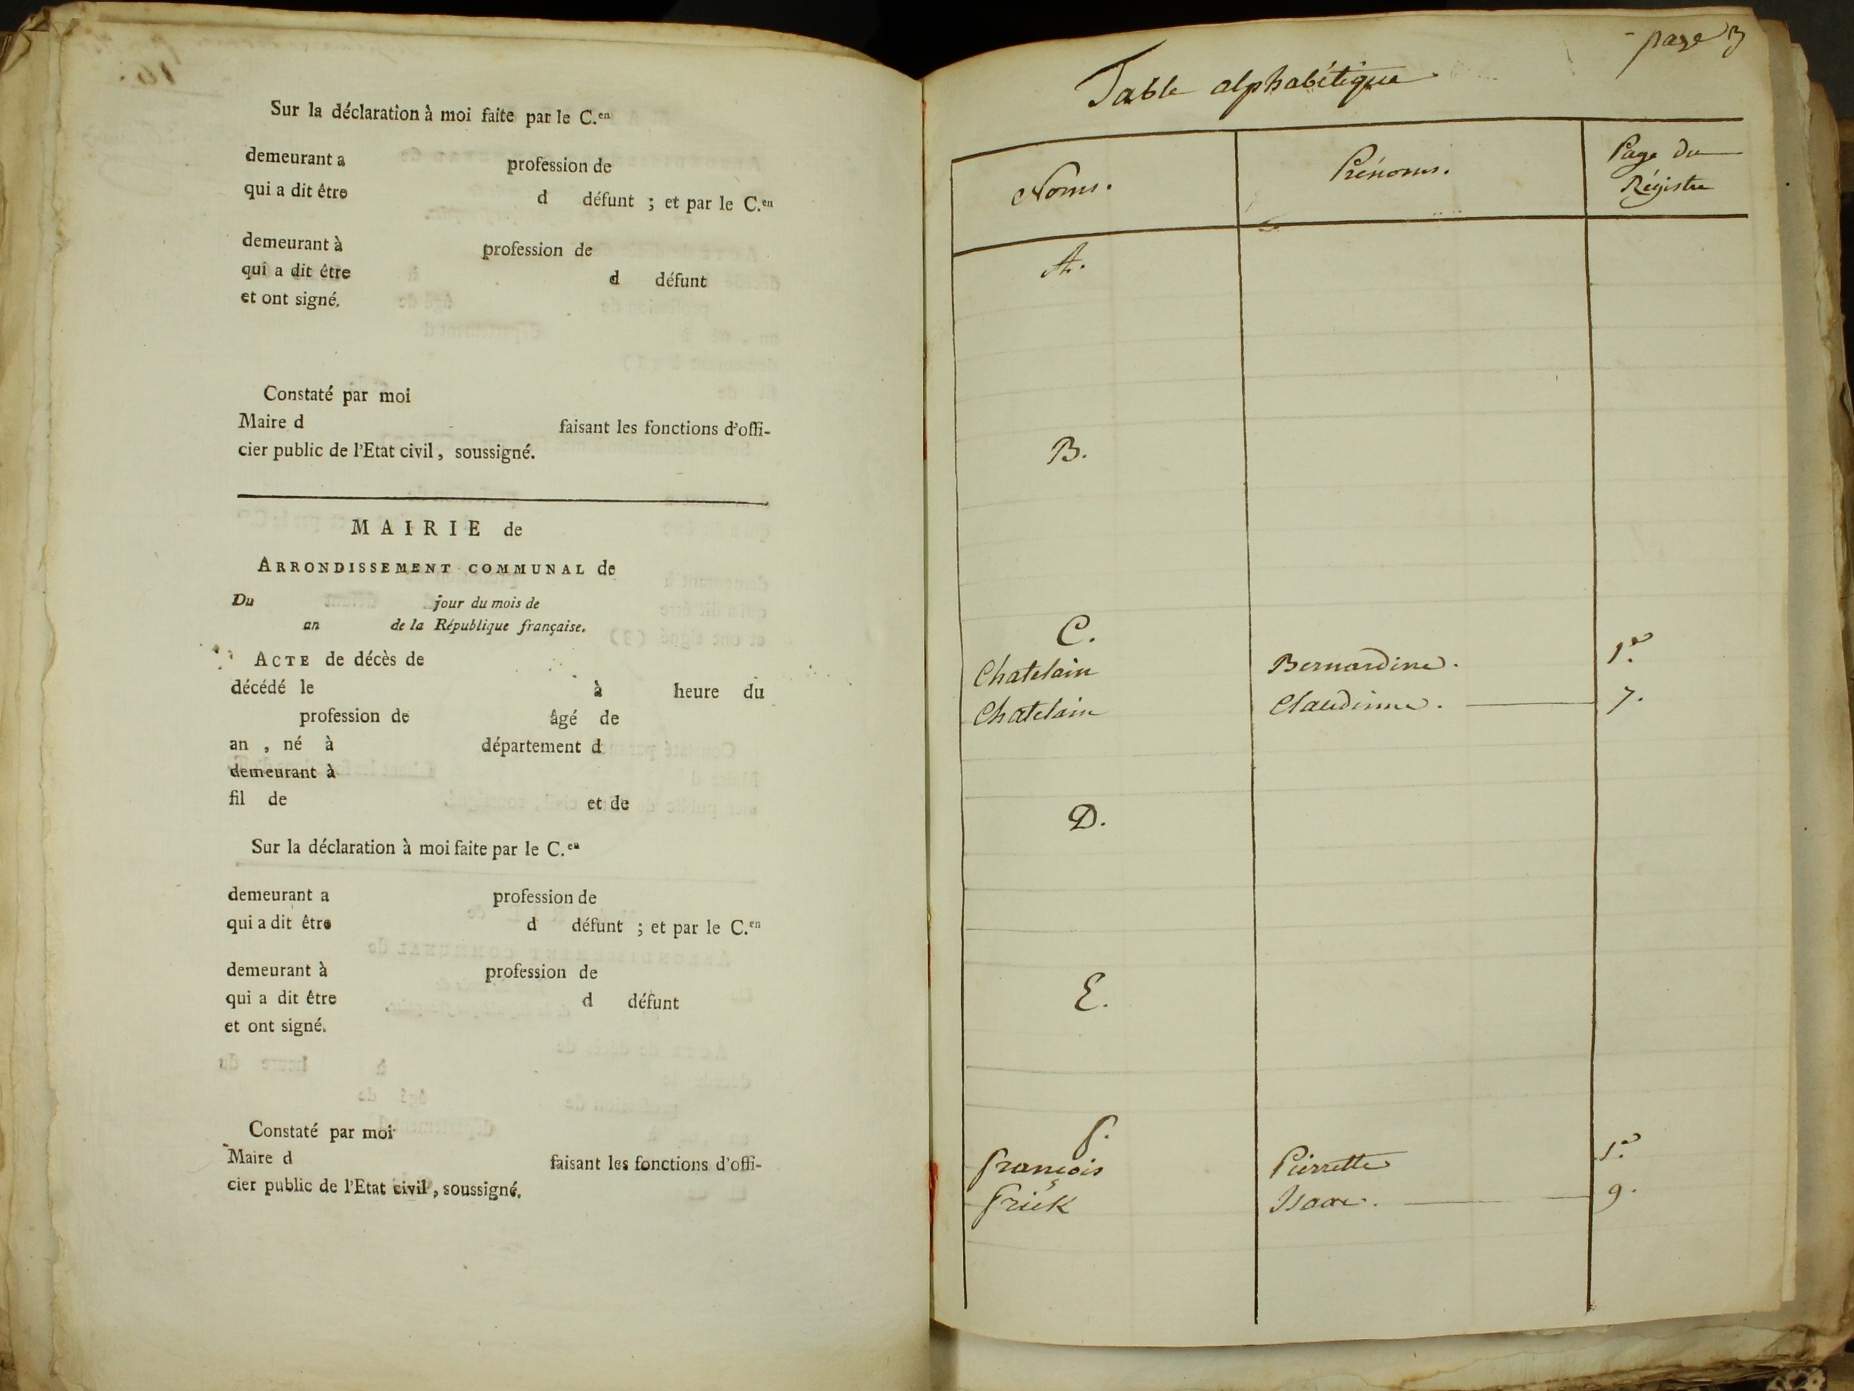 Sur la déclaration à moi faite par le C.en
demeurant a profession de
qui a dit être d défunt ; et par le C.en
demeurant à profession de
qui a dit être d défunt
et ont signé.
Constaté par moi
Maire d faisant les fonctions d'offi-
cier public de l'Etat civil, soussigné.
MAIRIE de
ARRONDISSEMENT COMMUNAL de
Du jour du mois de
an de la République française.
ACTE de décès de
décédé le à heure du
profession de âgé de
an , né à département d
demeurant à
fil de et de
Sur la déclaration à moi faite par le C.en
demeurant a profession de
qui a dit être d défunt ; et par le C.en
demeurant à profession de
qui a dit être d défunt
et ont signé.
Constaté par moi
Maire d faisant les fonctions d'offi-
cier public de l'Etat civil, soussigné.
page 3
Table alphabétique
Noms. Prénoms. Page du
Régistre
A.
B.
C.
Chatelain Bernardine. 1.e
Chatelain Claudinne. 7.
D.
E.
f.
françois Pierrette 1.e
frick Isaac. 9.